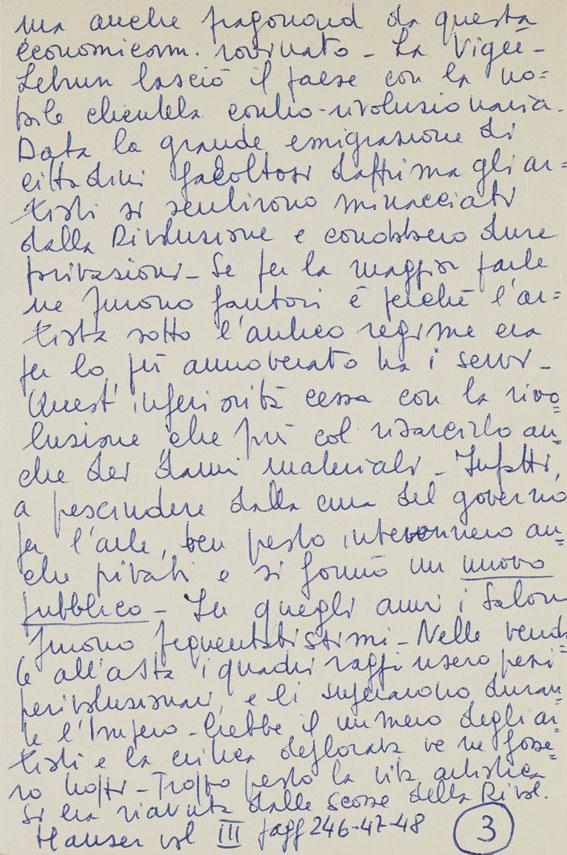 ma anche fragonard da questa
economicam. rovinato - La Vigée-
Lebrun lasciò il paese con la no=
bile clientela contro-rivoluzionaria.
Data la grande emigrazione di
cittadini facoltosi dapprima gli ar=
tisti si sentirono minacciati
dalla Rivoluzione e conobbero dure
privazioni - Se per la maggior parte
ne furono fautori è perchè l'ar-
tista sotto l'antico regime era
per lo più annoverato tra i servi -
Quest'inferiorità cessa con la rivo=
luzione, che finì col risarcirlo an=
che dei danni materiali - Infatti,
a prescindere dalla cura del governo
per l'arte, ben presto intervennero an=
che privati e si formò un nuovo
pubblico - In quegli anni i Salon
furono frequentatissimi - Nelle vendi
te all'asta i quadri raggiunsero prezzi
prerivoluzionari, e li superarono duran
te l'Impero - Crebbe il numero degli ar
tisti e la critica deplorava ve ne fosse
ro troppi - Troppo presto la vita artistica
si era riavuta dalle scosse della Rivol.
Hauser vol III pagg 246-47-48
3